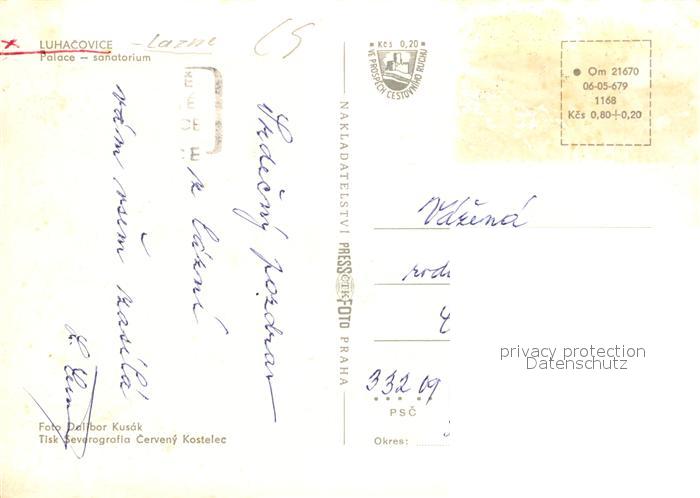 LUHAČOVICE - Lazne
Palace — sanatorium
Srdečný pozdrav
z lázní
vám všem zasílá
Foto Dalibor Kusák
Tisk Severografia Červený Kostelec
NAKLADATELSTVÍ PRESSFOTO PRAHA
ČTK
Kčs 0,20
VE PROSPĚCH CESTOVNÍHO RUCHU
Om 21670
06-05-679
1168
Kčs 0,80+0,20
Vážená
rod
332 09
PSČ
Okres:
privacy protection
Datenschutz